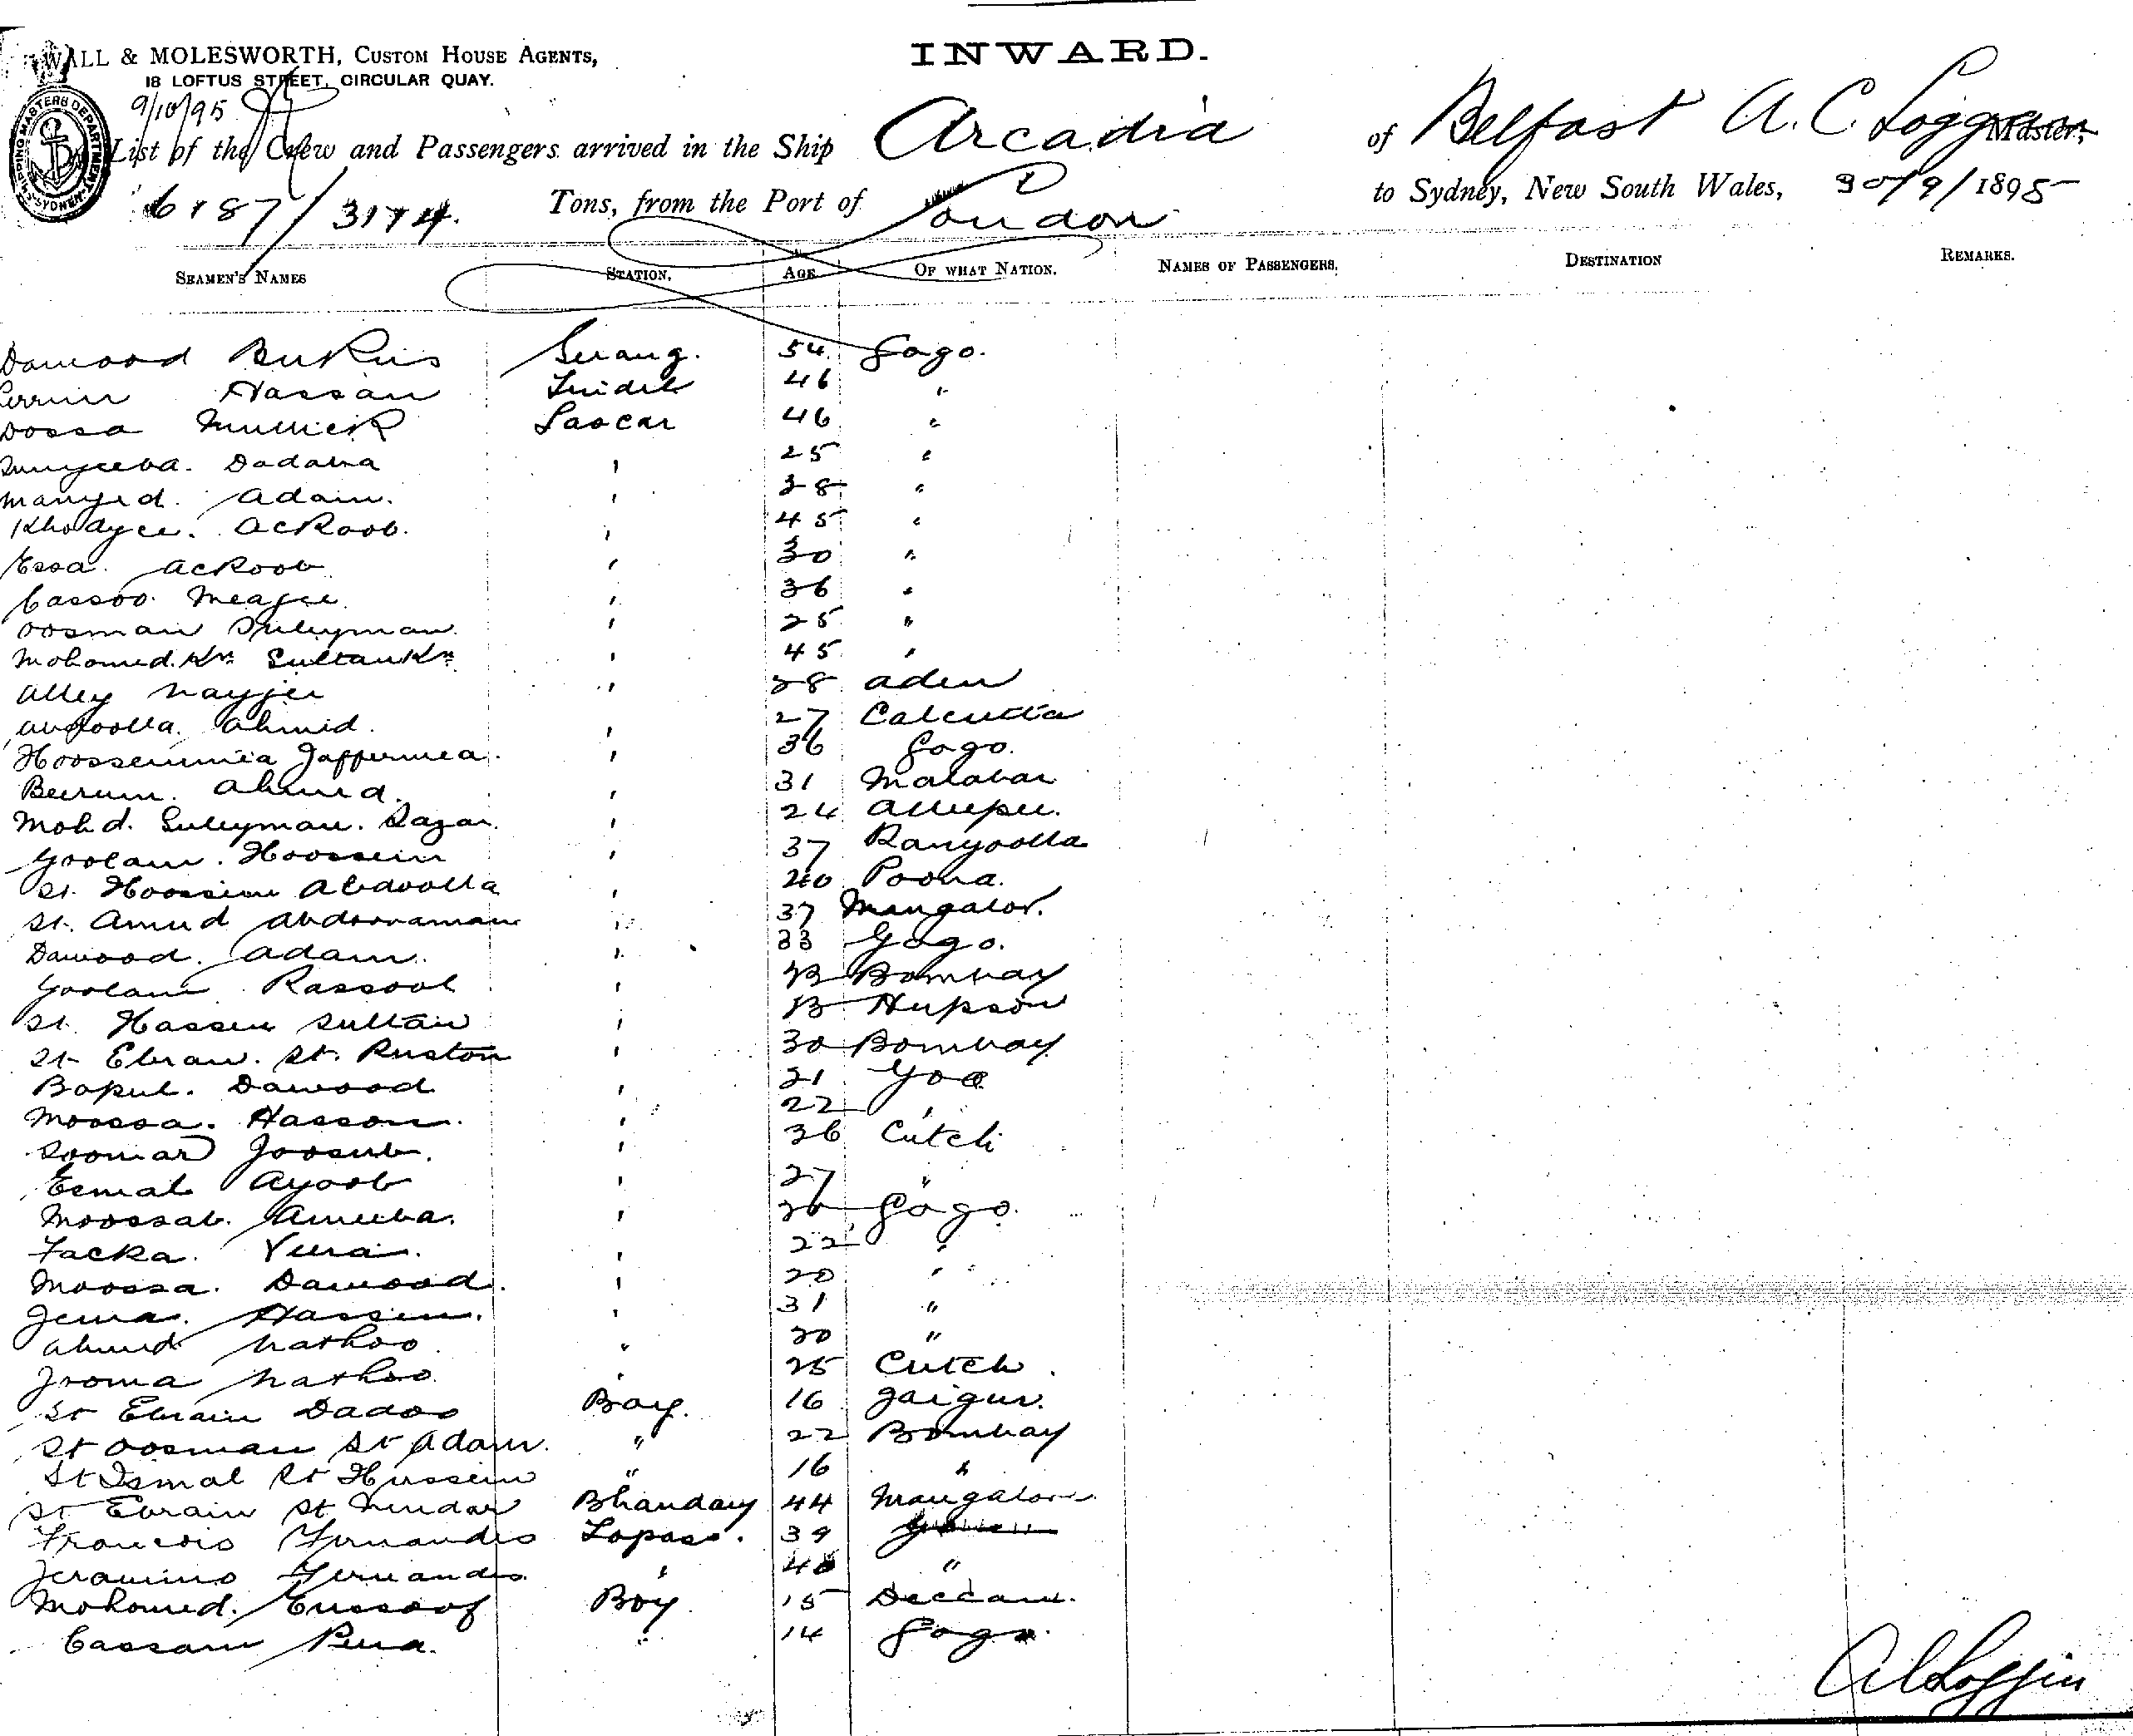 WALL & MOLESWORTH, CUSTOM HOUSE AGENTS,
18 LOFTUS STREET, CIRCULAR QUAY.
INWARD.
9/10/95
SHIPPING MASTERS DEPARTMENT SYDNEY
List of the Crew and Passengers arrived in the Ship Arcadia of Belfast A. C. Loggin Master,
6187/3174. Tons, from the Port of London to Sydney, New South Wales, 30/9/1895
SEAMEN'S NAMES STATION. AGE OF WHAT NATION. NAMES OF PASSENGERS. DESTINATION REMARKS.
Dawood Serang. 54 Gogo.
Hassan Tindel 46 "
Dossa Mullick Lascar 46 "
Dadabha " 25 "
Adam. " 38 "
Ackoob. " 45 "
Essa. Ackoob " 30 "
Cassoo. Meajee " 36 "
Oosman Suleyman " 25 "
Mohomed. Kn Sultan Kn " 45 "
Alley " 28 Aden
Abdoolla. Ahmid. " 27 Calcutta
Hoossenmia Jaffermea. " 36 Gogo.
Ahmed. " 31 Malabar
Mohd. Suleyman. " 24 Allepee.
Goolam. Hoossein " 37
St. Hoossein Abdoolla " 40 Poona.
St. Amud " 37 Mangalor.
Dawood. Adam. " 33 Gogo.
Goolam Rassool " Bombay
St. Hassen Sultan "
St. Ebram. St. Ruston " 30 Bombay
Dawood " 21 Goa
Moossa. Hasson. " 22 "
Soomar Joosub. " 36 Cutch
Esmal Ayoob " 27 "
Moossab. Ameeba. " Gogo.
Facka. " 22 "
Moossa. Dawood. " 20 "
Jema. Hassen. " 31 "
Ahmed Nathoo " 20 "
Jooma Nathoo. " 25 Cutch.
St Ebraim Dadoo Boy. 16 Jaigur.
St Oosman St Adam. " 22 Bombay
St Ismal St Hussein " 16 "
St Ebrain St Bhandary 44 Mangalore
Francois Fernandes Topass. 39
Fernandes " "
Mohomed. Eussoof Boy 15 Deccan.
Cassam " 14 Gogo.
A C Loggin